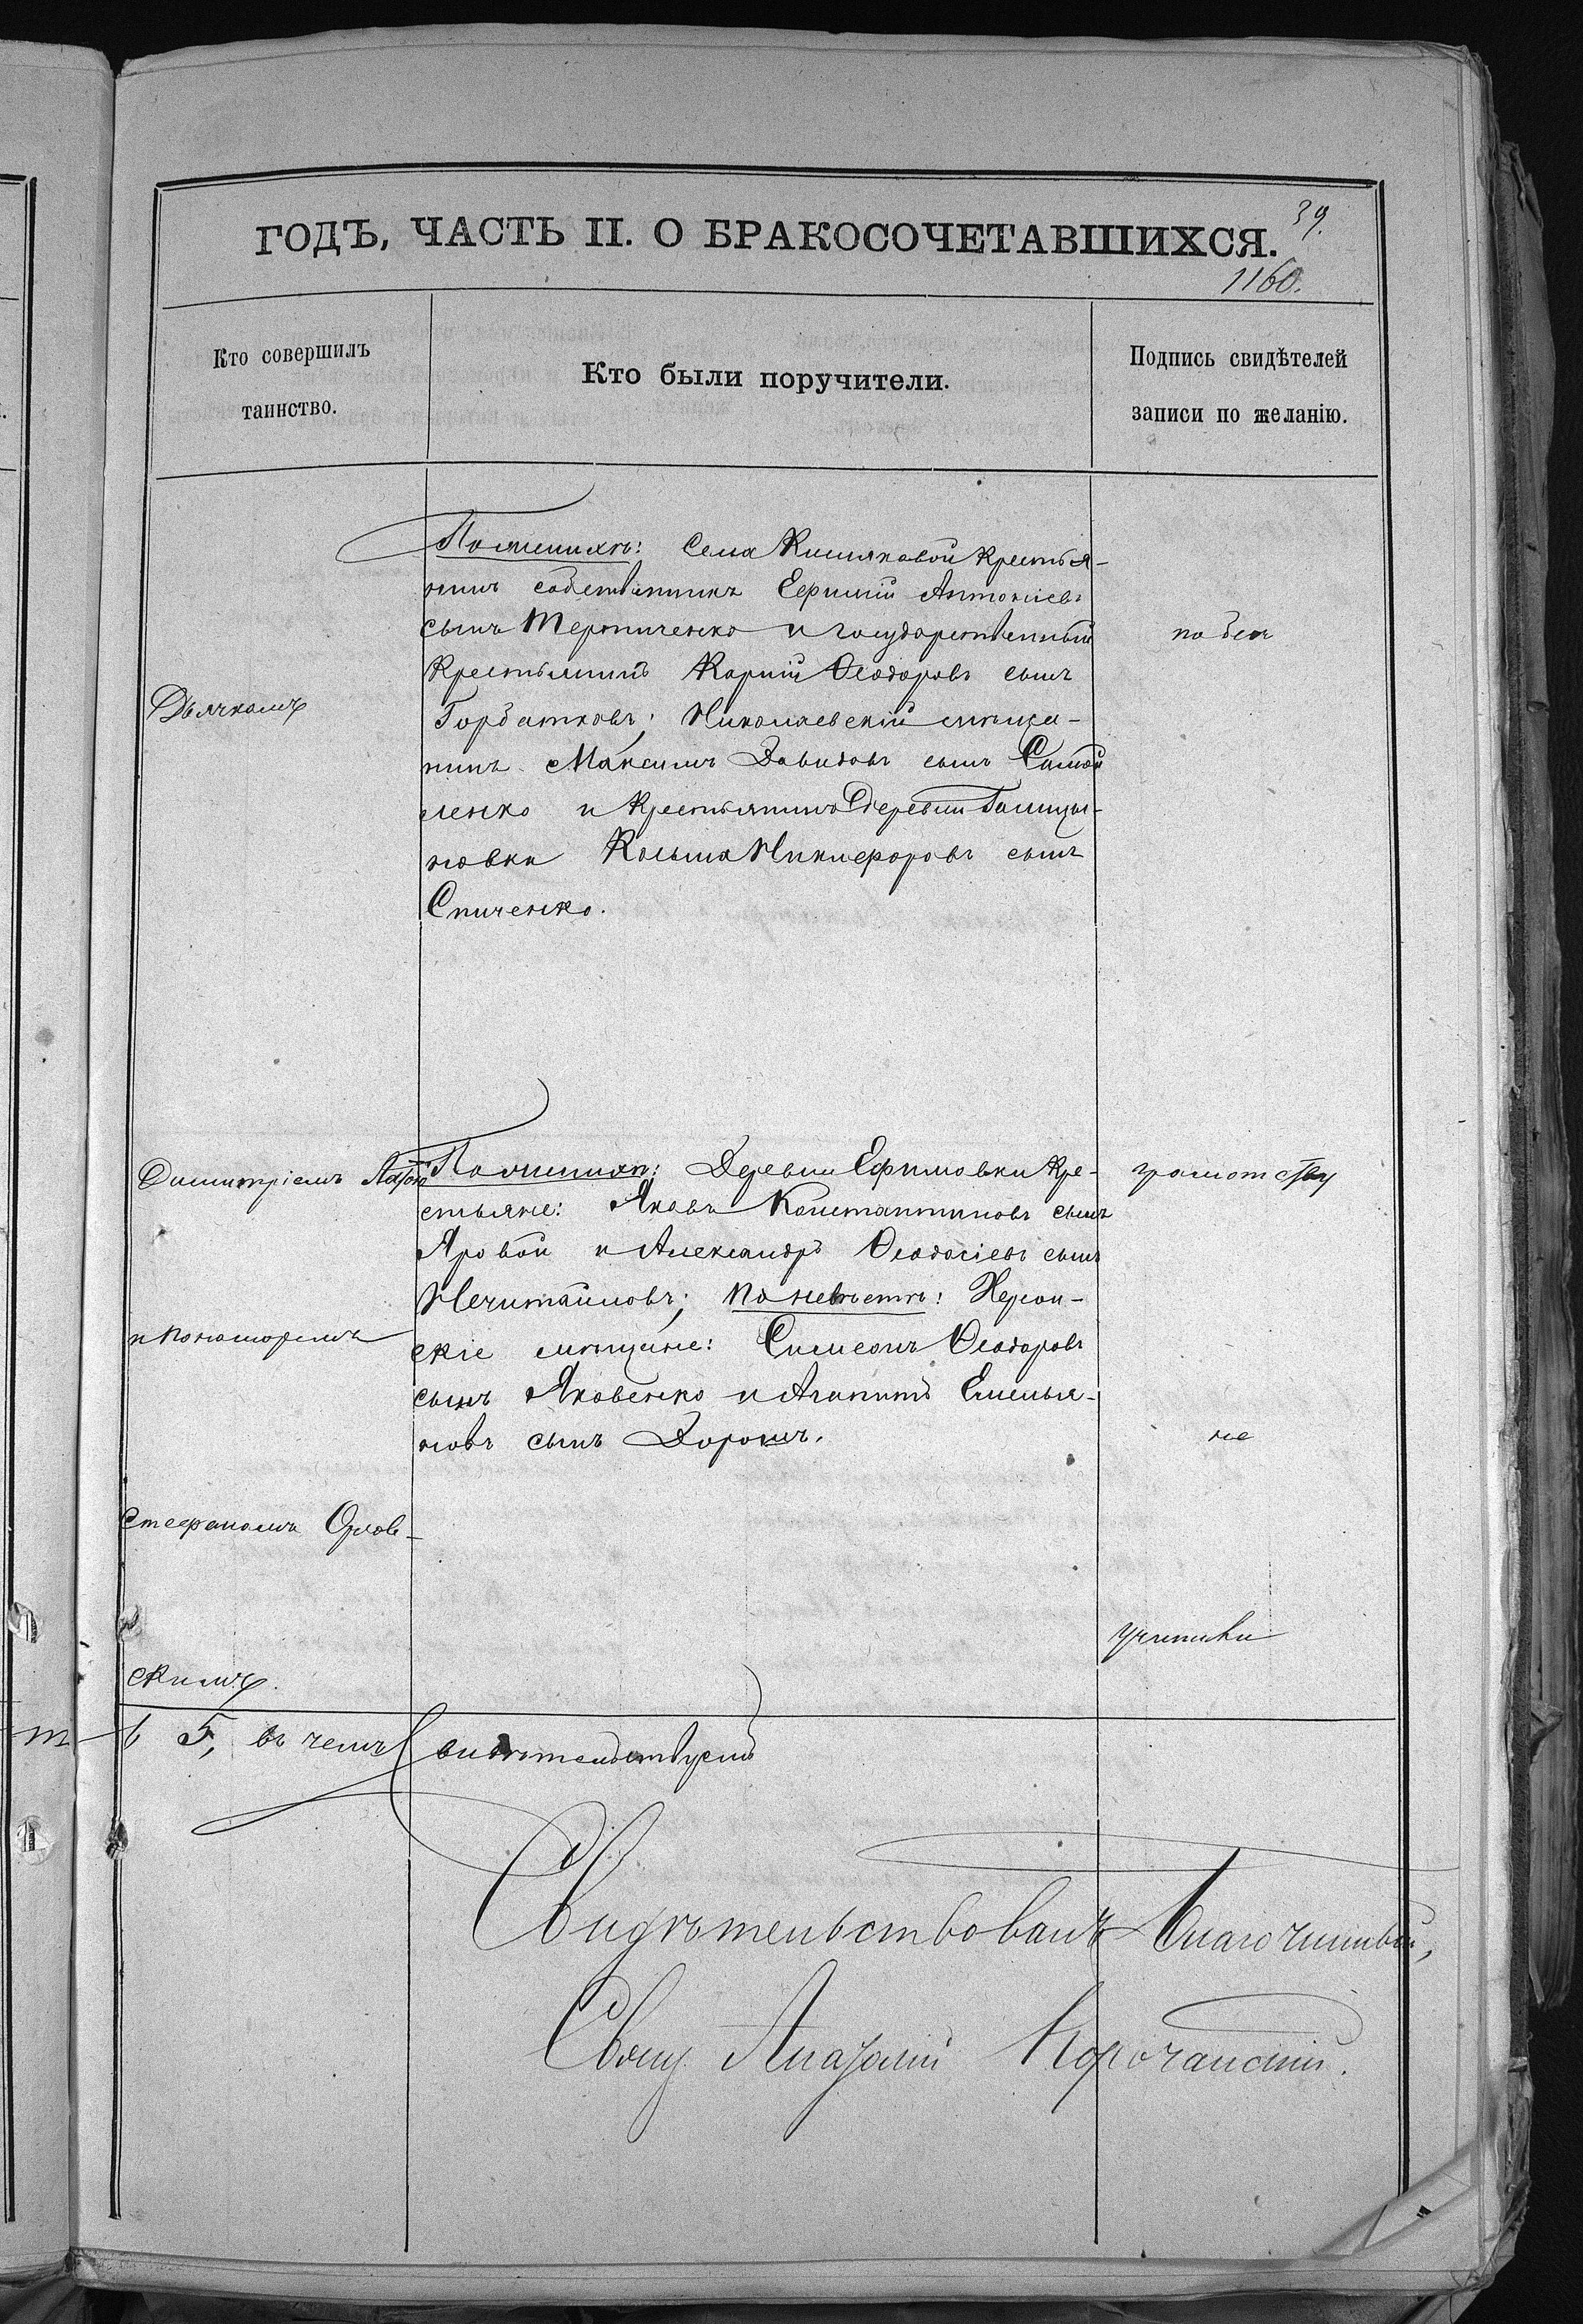 39.
ГОДЪ, ЧАСТЬ II. О БРАКОСОЧЕТАВШИХСЯ.
1160.
Кто совершилъ
таинство.
Кто были поручители.
Подпись свидѣтелей
записи по желанію.
По женихѣ: Села Кисляковой крестья-
нинъ собственникъ Ефимій Антоніевъ
сынъ Терпиченко и государственный
крестьянинъ Карпій Ѳеодоровъ сынъ
Горбатковъ; Николаевскій мѣща-
нинъ Максимъ Давидовъ сынъ Самой
ленко и крестьянинъ деревни Голицы-
новки Козьма Никифоровъ сынъ
Спиченко.
Дьячкомъ
по без
Димитріемъ
По женихѣ: Деревни Ефимовки кре-
стьяне: Яковъ Константиновъ сынъ
Яровой и Александръ Ѳеодосіевъ сынъ
Нечитайловъ; по невѣстѣ: Херсон-
скіе мѣщане: Симеонъ Ѳеодоровъ
сынъ Яковенко и Агапитъ Емелья-
новъ сынъ Дорошъ.
и пономаремъ
Стефаномъ Орлов-
скимъ.
грамотству
не
учинили
т-ь 5, въ чемъ Свидѣтельствуемъ
Свидѣтельствовалъ Благочинный,
Свящ. Корочанскій.